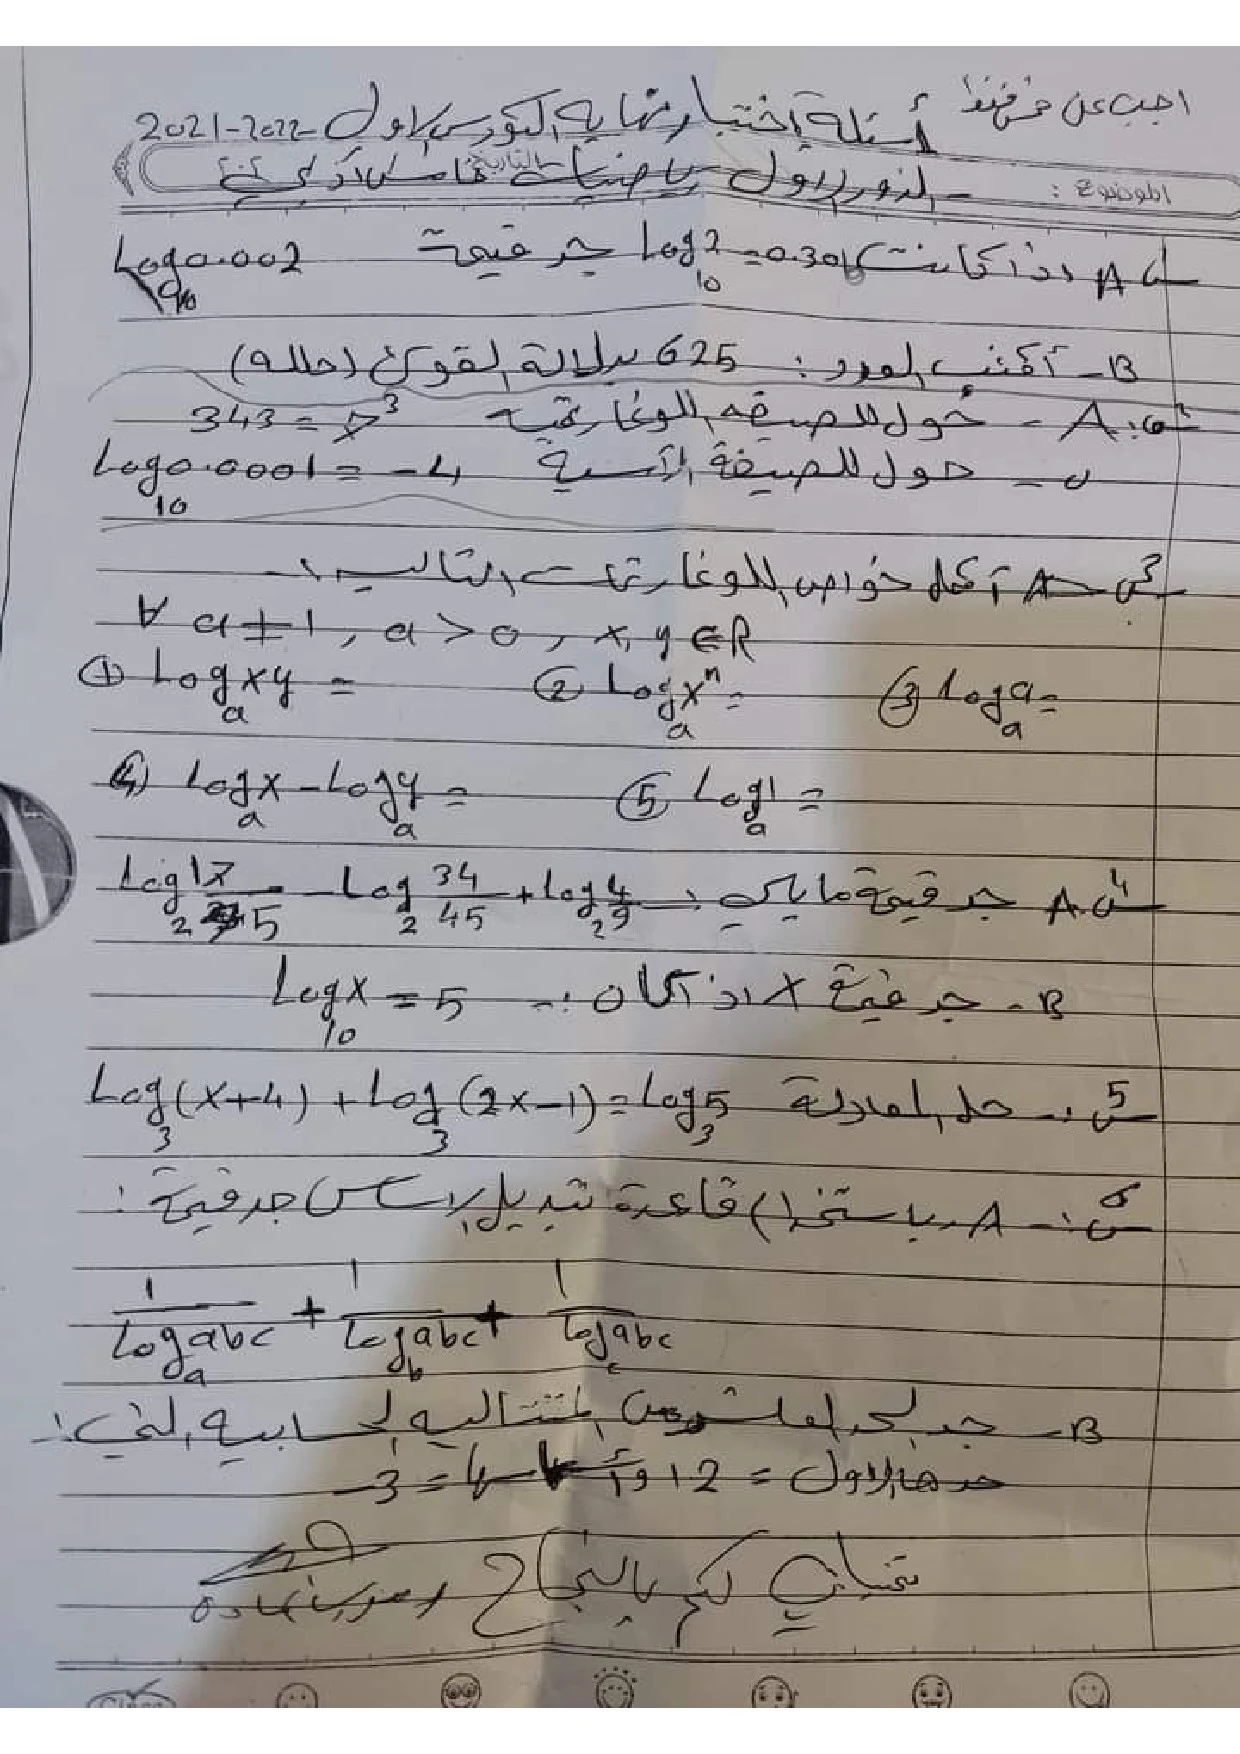 اجب عن خمس فقط
أسئلة اختبار نهاية الكورس الاول 2021-2022
الموضوع : التاريخ الدور الاول رياضيات خامس أدبي
س1 A اذا كانت log₁₀2 = 0.301 جد قيمة Log₁₀0.002
B- أكتب العدد : 625 بدلالة القوى (حلله)
س2: A - حول للصيغه اللوغارتميه 343 = 7³
ب - حول للصيغة الأسية Log₁₀0.0001 = -4
س3 A أكمل خواص اللوغارتمات التالية :-
∀ a ≠ 1 , a > 0 , x, y ∈ R
① Logₐxy = ② Logₐxⁿ = ③ Logₐa =
④ Logₐx - Logₐy = ⑤ Logₐ1 =
س4 A. جد قيمة ما يلي :- Log₂ 17/5 - Log₂ 34/45 + Log₂ 4/9
B - جد قيمة X اذا كان :- Log₁₀x = 5
س5 :- حل المعادلة Log₃(x+4) + Log₃(2x-1) = Log₃5
س6 :- A - باستخدام قاعدة تبديل الاساس جد قيمة :
1/Logₐabc + 1/Log_b abc + 1/Log_c abc
B - جد الحد العاشر من المتتاليه الحسابيه التي :-
حدها الاول = 12 و أساسها = -3
تمنياتي لكم بالنجاح